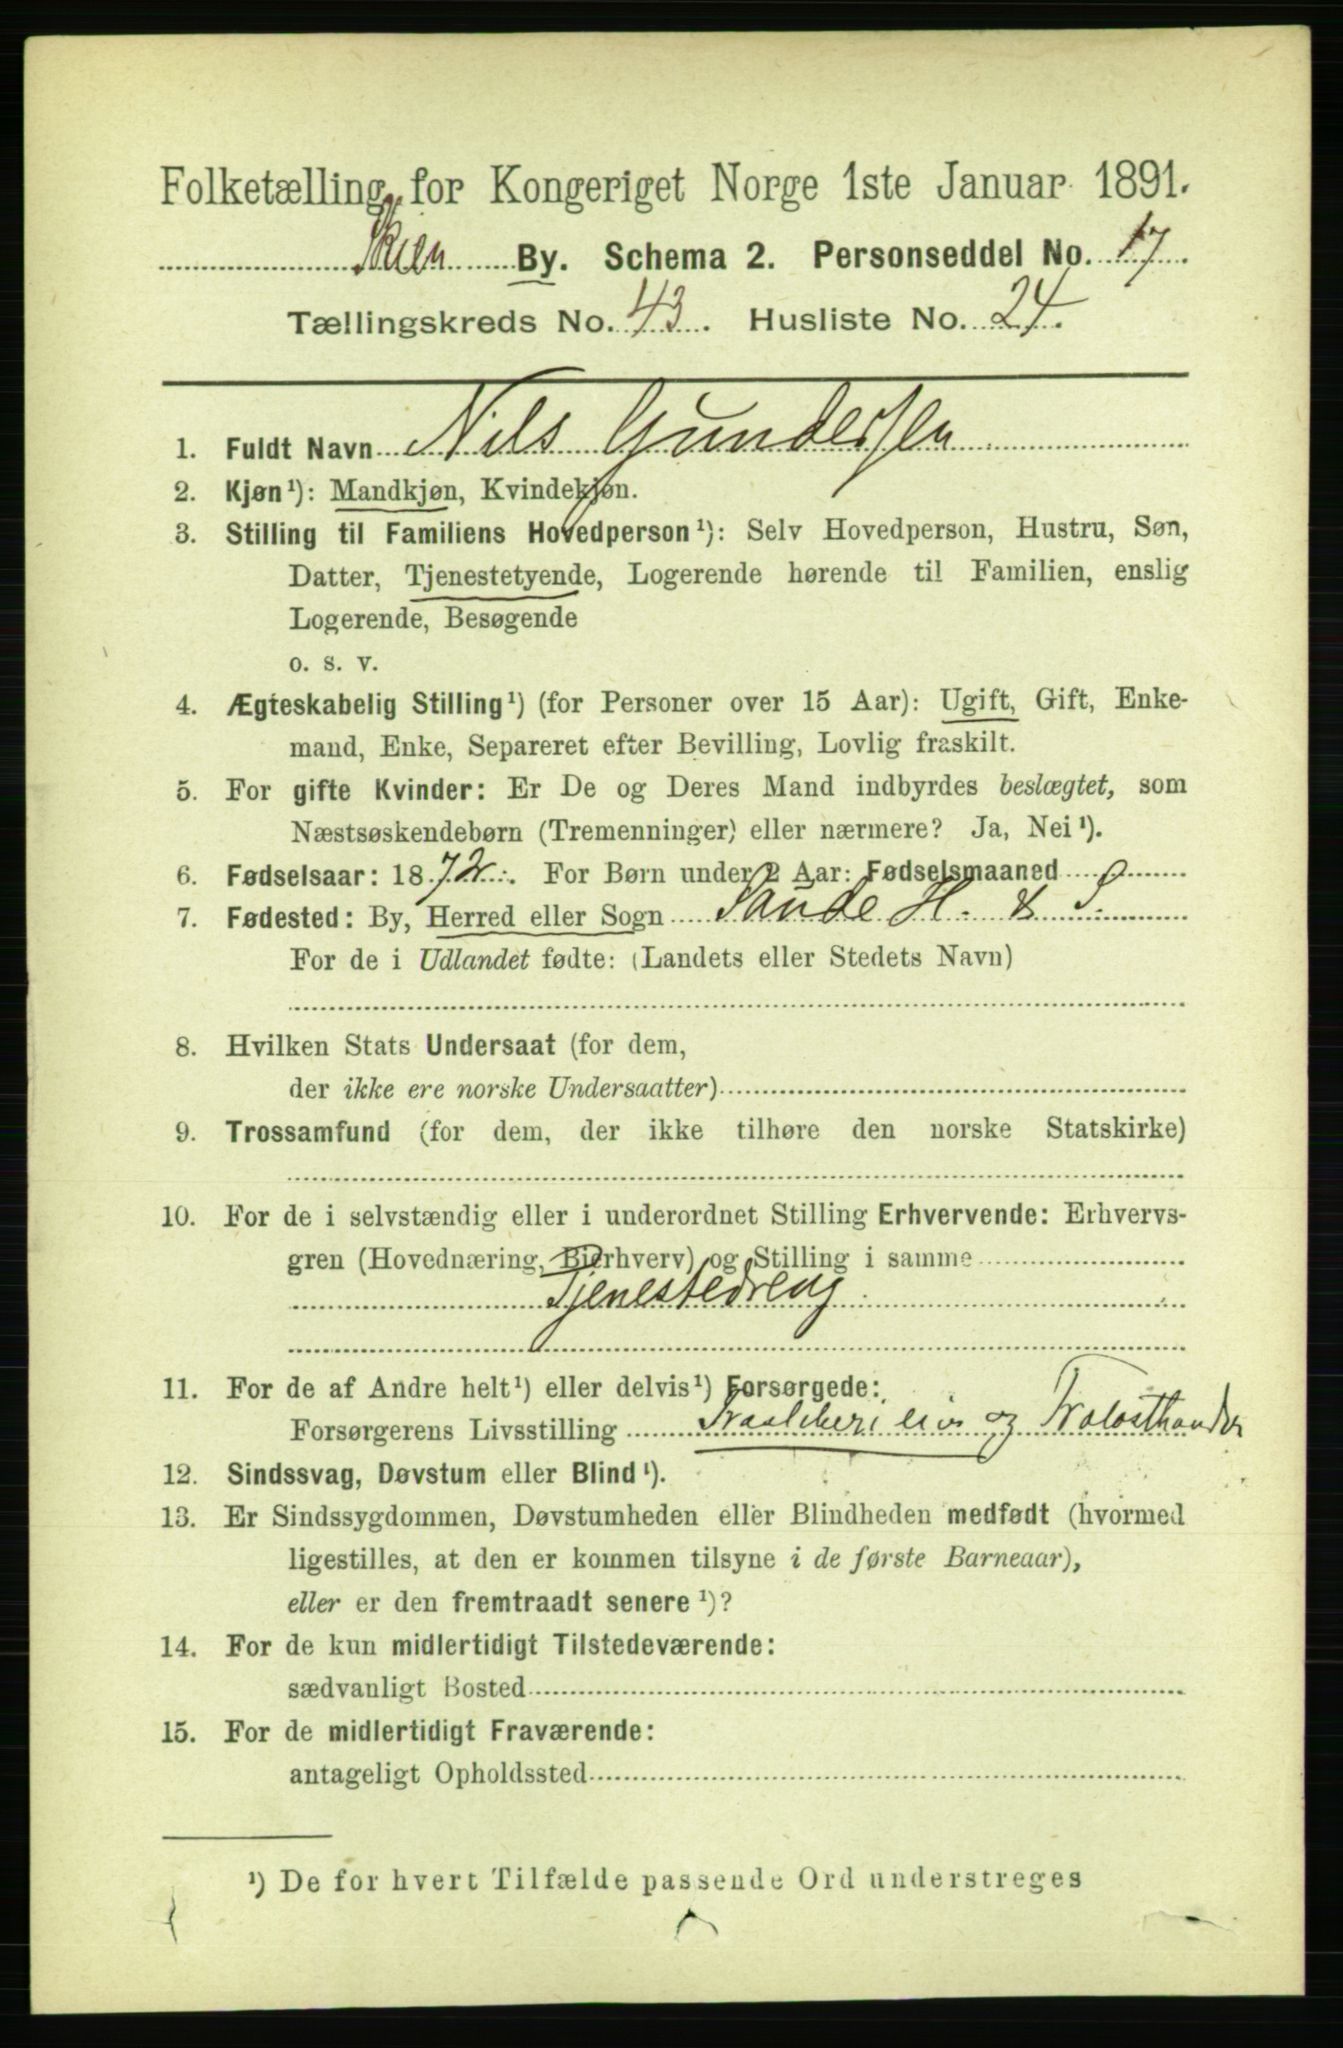 Folketælling for Kongeriget Norge 1ste Januar 1891.
Skien By. Schema 2. Personseddel No. 17.
Tællingskreds No. 43. Husliste No. 24.
1. Fuldt Navn Nils Gundersen
2. Kjøn¹): Mandkjøn, Kvindekjøn.
3. Stilling til Familiens Hovedperson¹): Selv Hovedperson, Hustru, Søn,
Datter, Tjenestetyende, Logerende hørende til Familien, enslig
Logerende, Besøgende
o. s. v.
4. Ægteskabelig Stilling¹) (for Personer over 15 Aar): Ugift, Gift, Enke-
mand, Enke, Separeret efter Bevilling, Lovlig fraskilt.
5. For gifte Kvinder: Er De og Deres Mand indbyrdes beslægtet, som
Næstsøskendebørn (Tremenninger) eller nærmere? Ja, Nei¹).
6. Fødselsaar: 1872. For Børn under 2 Aar: Fødselsmaaned
7. Fødested: By, Herred eller Sogn Saude H. & S.
For de i Udlandet fødte: (Landets eller Stedets Navn)
8. Hvilken Stats Undersaat (for dem,
der ikke ere norske Undersaatter)
9. Trossamfund (for dem, der ikke tilhøre den norske Statskirke)
10. For de i selvstændig eller i underordnet Stilling Erhvervende: Erhvervs-
gren (Hovednæring, Bierhverv) og Stilling i samme
Tjenestedreng
11. For de af Andre helt¹) eller delvis¹) Forsørgede:
Forsørgerens Livsstilling og Trælasthandler
12. Sindssvag, Døvstum eller Blind¹).
13. Er Sindssygdommen, Døvstumheden eller Blindheden medfødt (hvormed
ligestilles, at den er kommen tilsyne i de første Barneaar),
eller er den fremtraadt senere¹)?
14. For de kun midlertidigt Tilstedeværende:
sædvanligt Bosted
15. For de midlertidigt Fraværende:
antageligt Opholdssted
¹) De for hvert Tilfælde passende Ord understreges